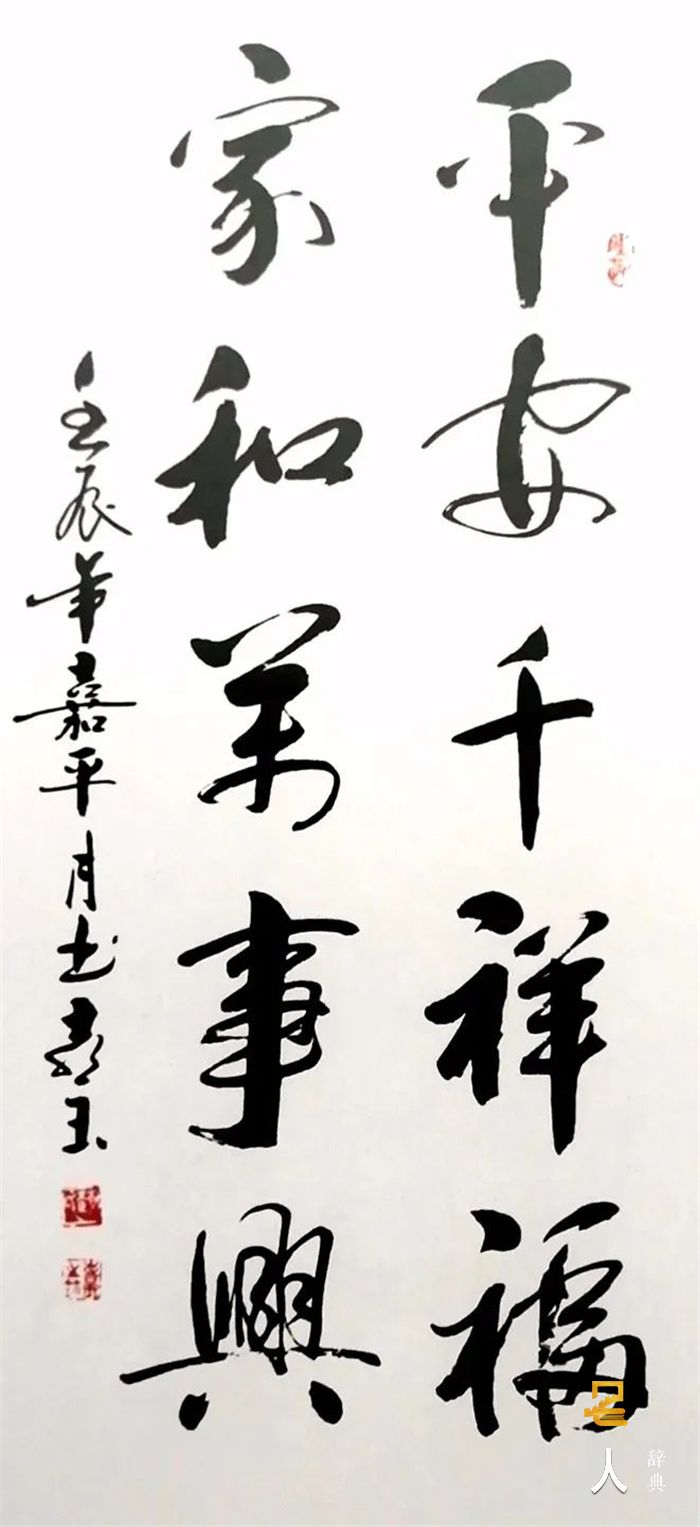 平安千祥福
家和万事興
壬辰年嘉平月书袁玉
名人
辞典